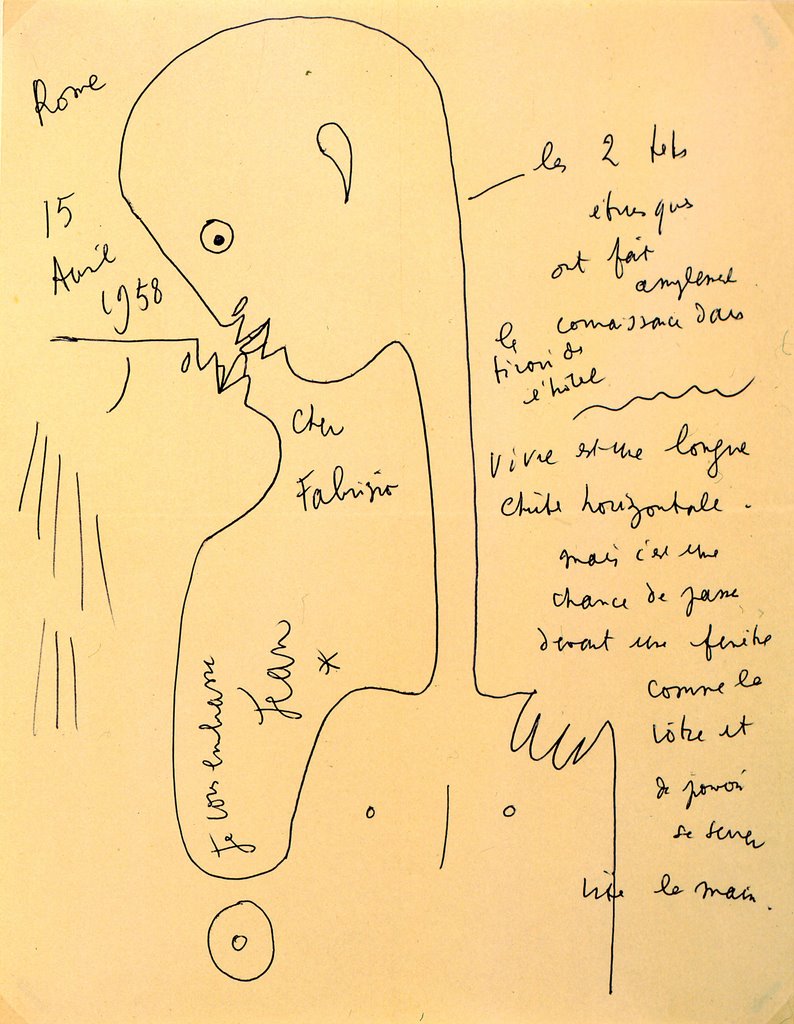 Rome
15
Avril
1958
Cher
Fabrizio
Je vous embrasse
Jean
*
les 2 
étrusques
ont fait
connaissance dans
le
tiroir de
l'hôtel
Vivre est une longue
chute horizontale.
mais c'est une
chance de passer
devant une fenêtre
comme la
vôtre et
de pouvoir
se serrer
vite la main.